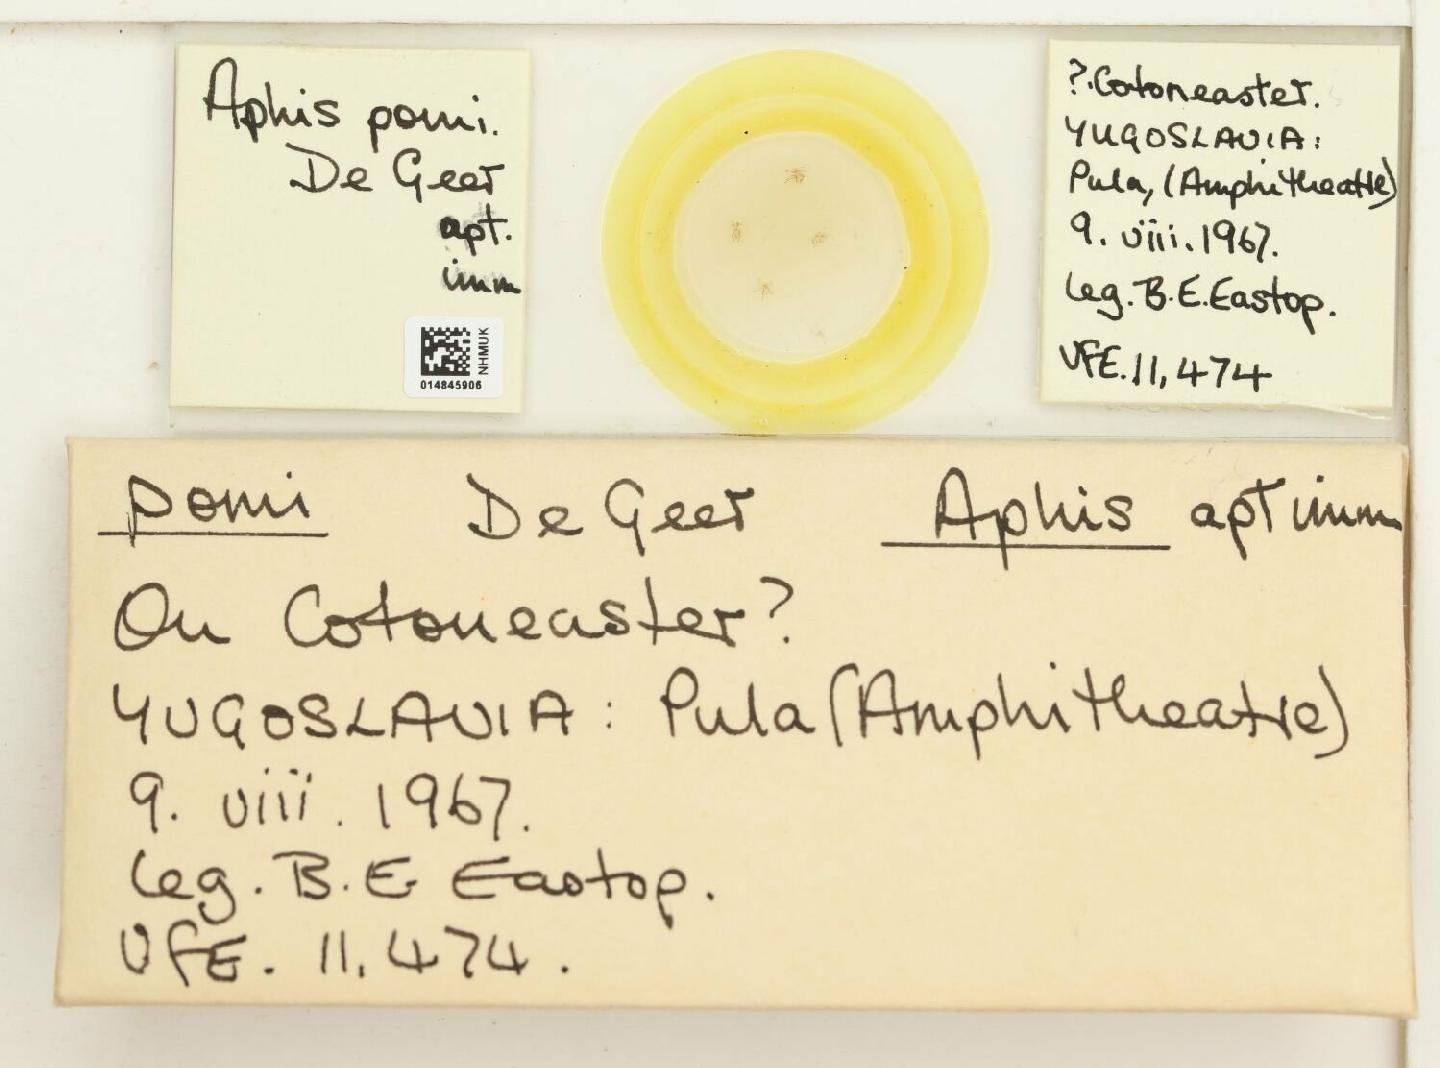 Aphis pomi.
De Geer
apt.
imm
NHMUK
014845906
?.Cotoneaster.
YUGOSLAVIA:
Pula, (Amphitheatre)
9. viii. 1967.
leg. B. E. Eastop.
VFE. 11,474
pomi De Geer Aphis apt imm
On Cotoneaster?
YUGOSLAVIA: Pula (Amphitheatre)
9. viii. 1967.
leg. B. E Eastop.
VFE. 11,474.